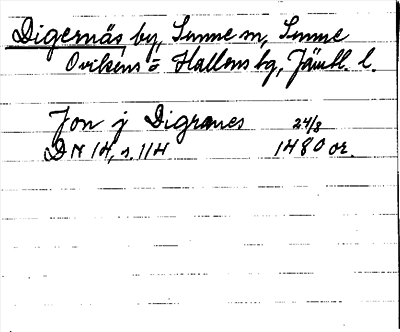 Digernäs by, Sunne sn, Sunne
Ovikens o Hallens tg, Jämtl. l.
Jon j Digranes 24/8
DN 14, s. 114 1480 or.